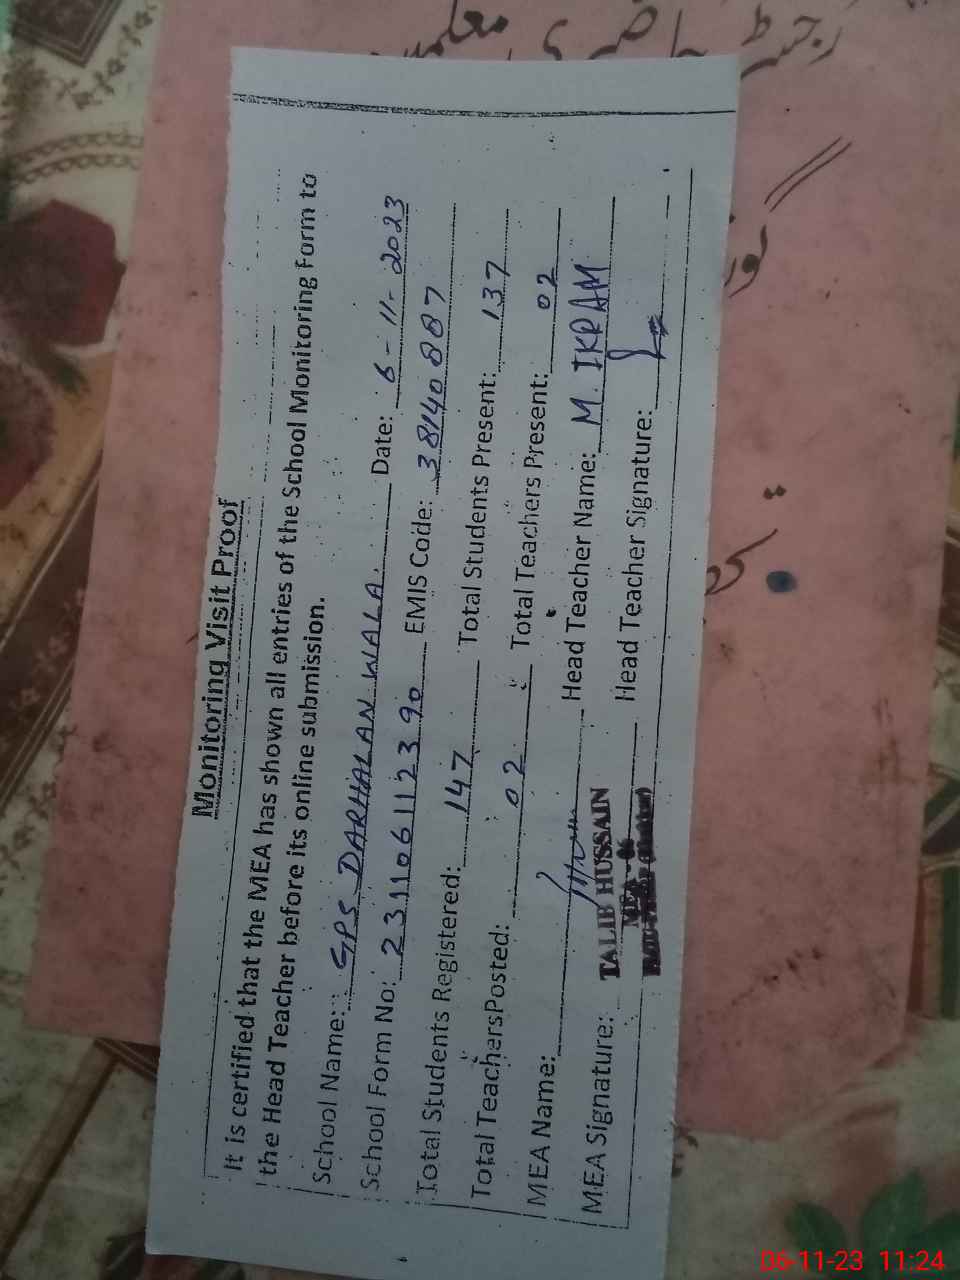 رجسٹر حاضری معلمین
Monitoring Visit Proof
It is certified that the MEA has shown all entries of the School Monitoring Form to
the Head Teacher before its online submission.
School Name: GPS DARHALAN WALA. Date: 6-11-2023
School Form No: 231106112390 EMIS Code: 38140887
Total Students Registered: 147 Total Students Present: 137
Total TeachersPosted: 02 Total Teachers Present: 02
MEA Name: Head Teacher Name: M. IKRAM
MEA Signature: Head Teacher Signature:
TALIB HUSSAIN
MEA - 06
06-11-23 11:24